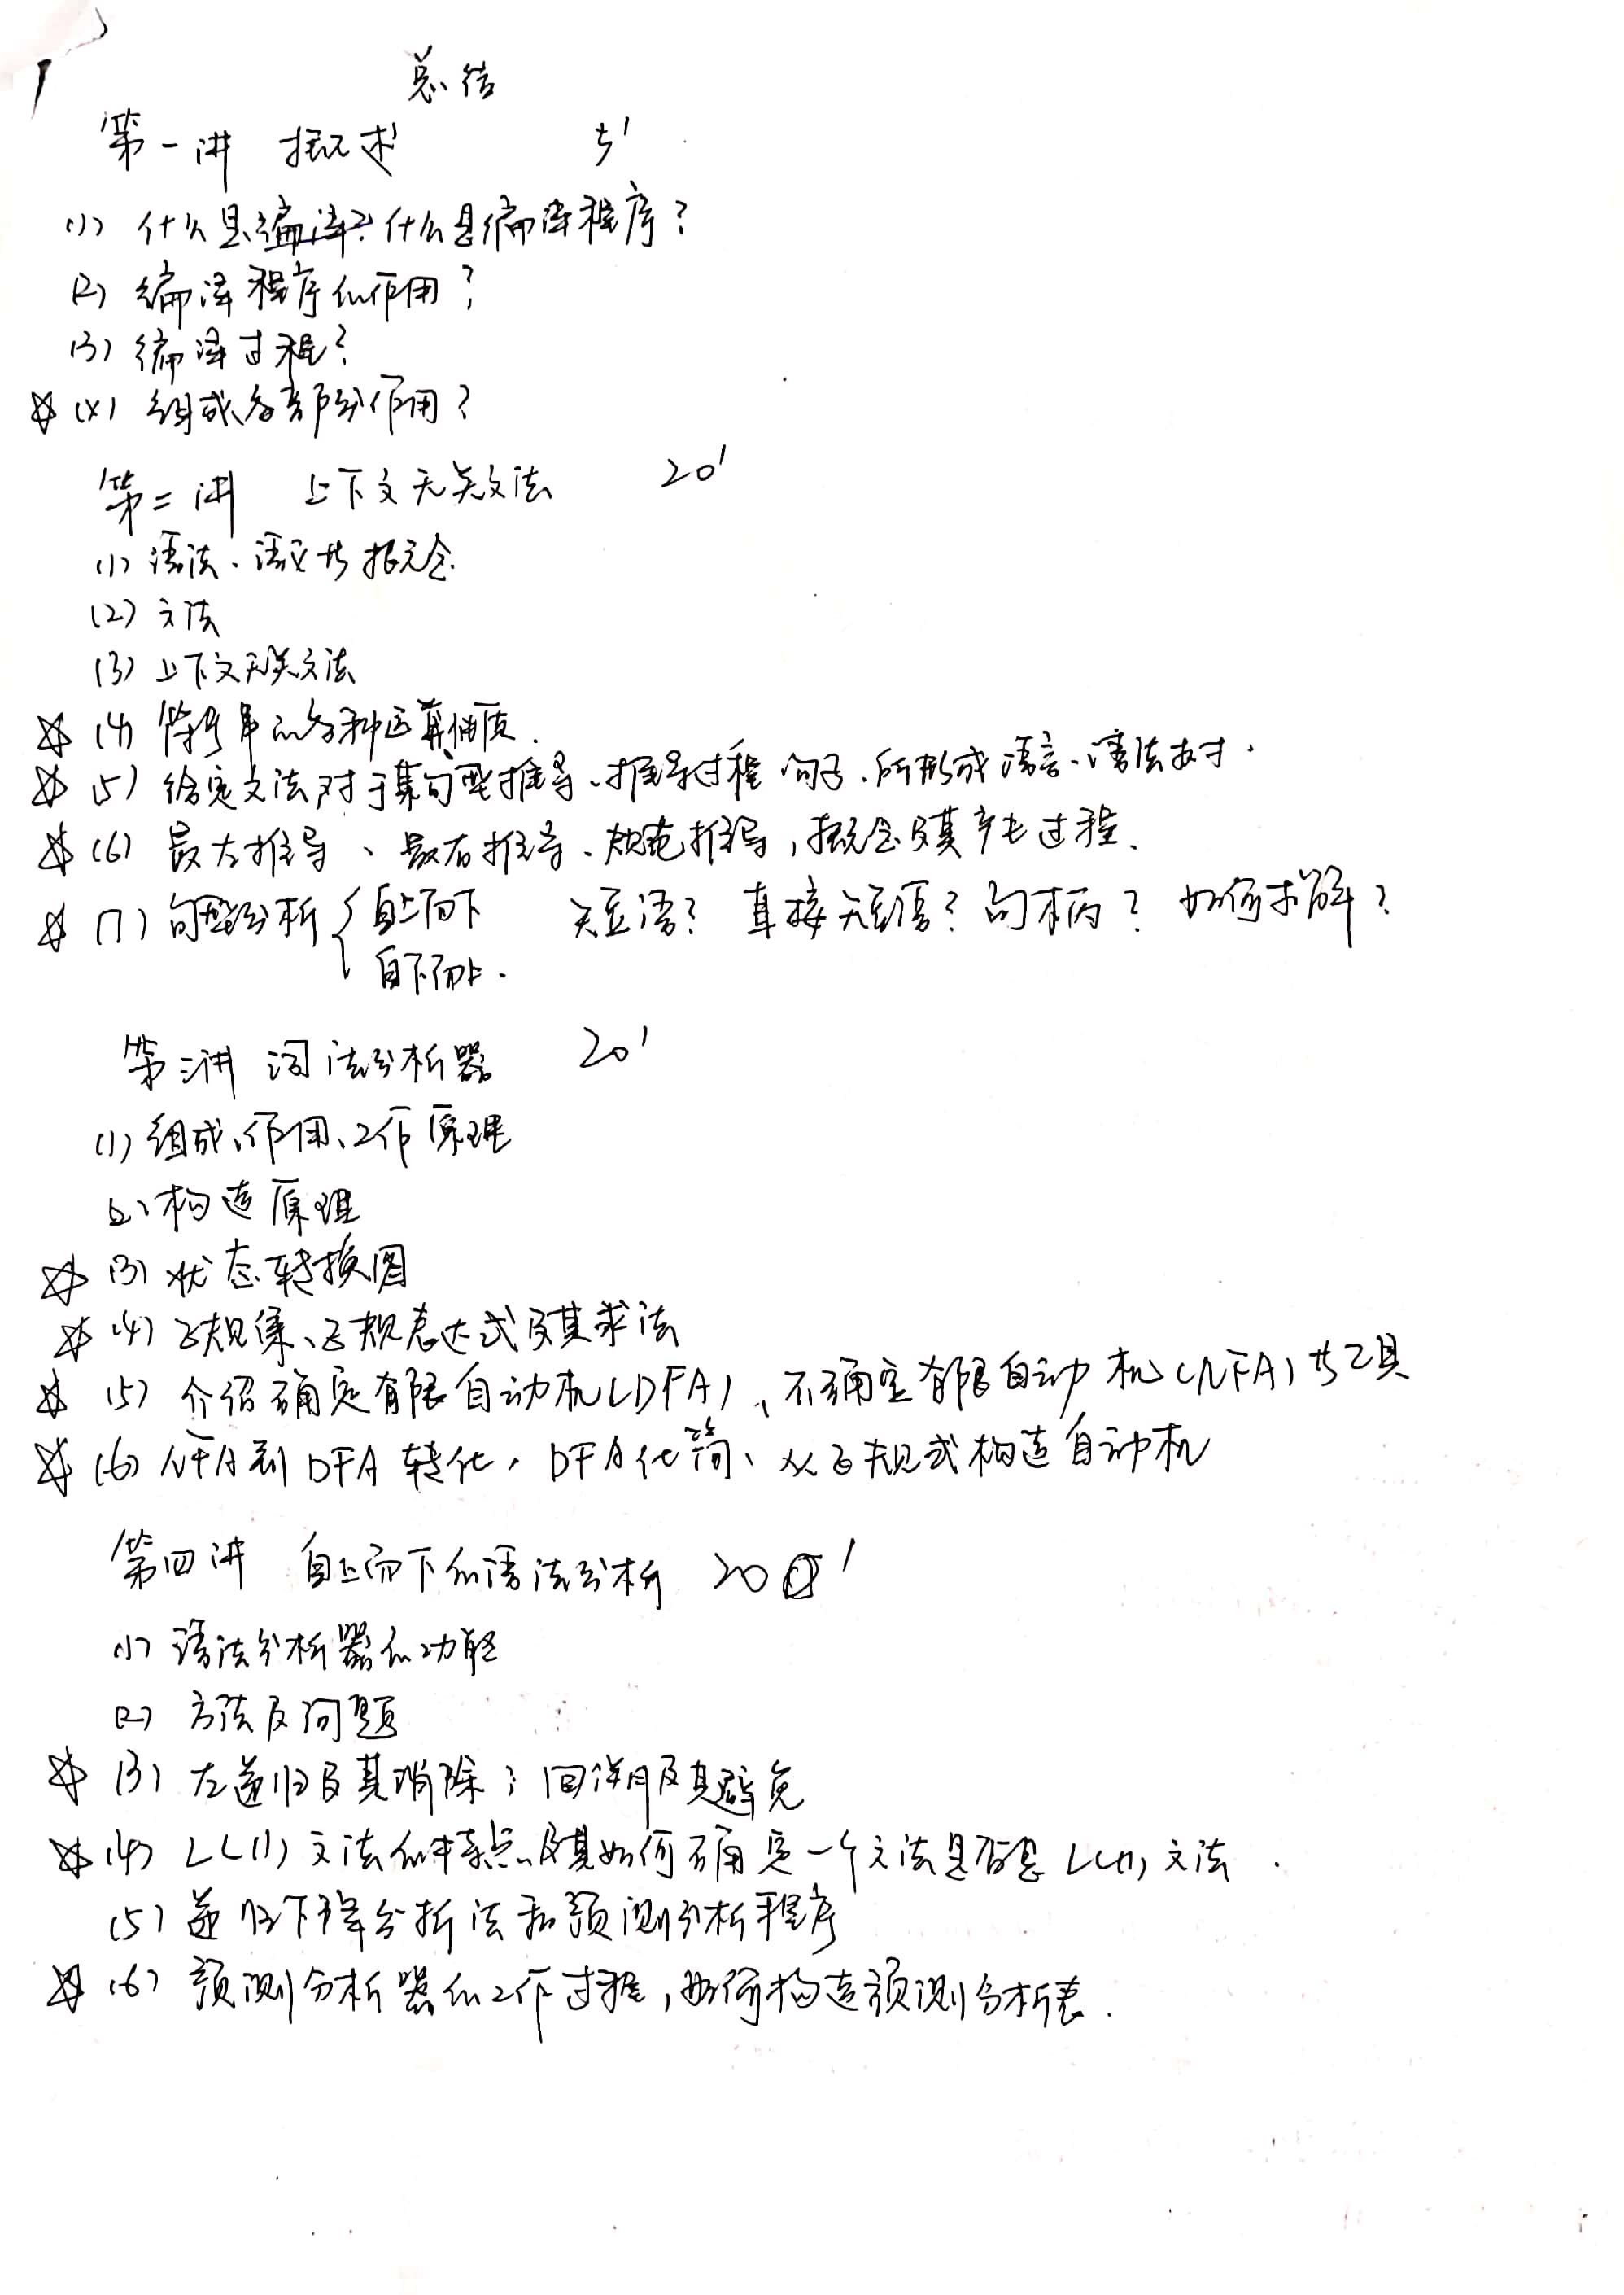 总结
第一讲 概述 5'
(1) 什么是编译? 什么是编译程序?
(2) 编译程序的作用?
(3) 编译过程?
☆ (4) 组成各部分作用?
第二讲 上下文无关文法 20'
(1) 语法、语义等概念.
(2) 文法
(3) 上下文无关文法
☆ (4) 符号串的各种运算性质.
☆ (5) 给定文法对于某句型推导、推导过程 句子、所形成语言、语法树.
☆ (6) 最左推导、最右推导、规范推导, 概念及其产生过程.
☆ (7) 句型分析 { 自上而下 短语? 直接短语? 句柄? 如何求解?
自下而上.
第三讲 词法分析器 20'
(1) 组成、作用、工作原理
(2) 构造原理
☆ (3) 状态转换图
☆ (4) 正规集、正规表达式及其求法
☆ (5) 介绍确定有限自动机(DFA)、不确定有限自动机(NFA)等工具
☆ (6) NFA到DFA转化, DFA化简、从正规式构造自动机
第四讲 自上而下的语法分析 20'
(1) 语法分析器的功能
(2) 方法及问题
☆ (3) 左递归及其消除; 回溯及其避免
☆ (4) LL(1) 文法的特点及其如何确定一个文法是否是 LL(1) 文法.
(5) 递归下降分析法和预测分析程序
☆ (6) 预测分析器的工作过程, 如何构造预测分析表.